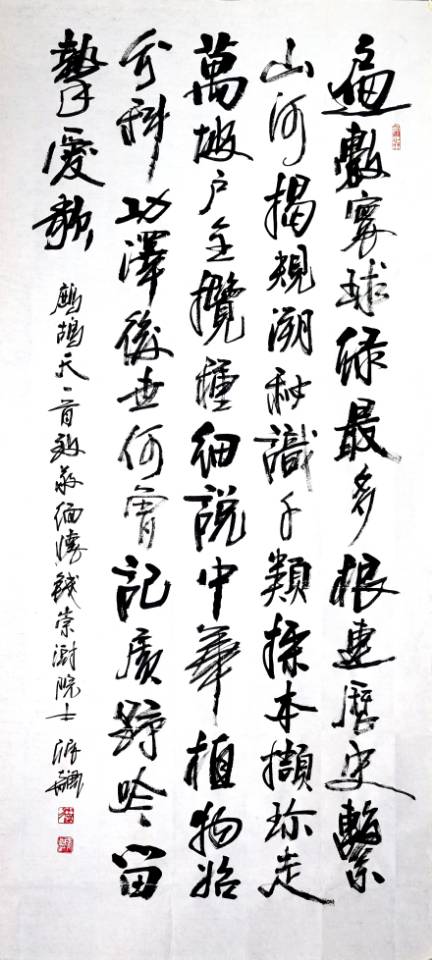 遍數寰球綠最多根連歷史繫
山河揭規溯秘識千類採本擷珍走
萬坡戶全攬種細說中華植物始
分科功澤後世何曾記廣野吟留
摯愛歌
鷓鴣天一首致敬緬懷錢崇澍院士